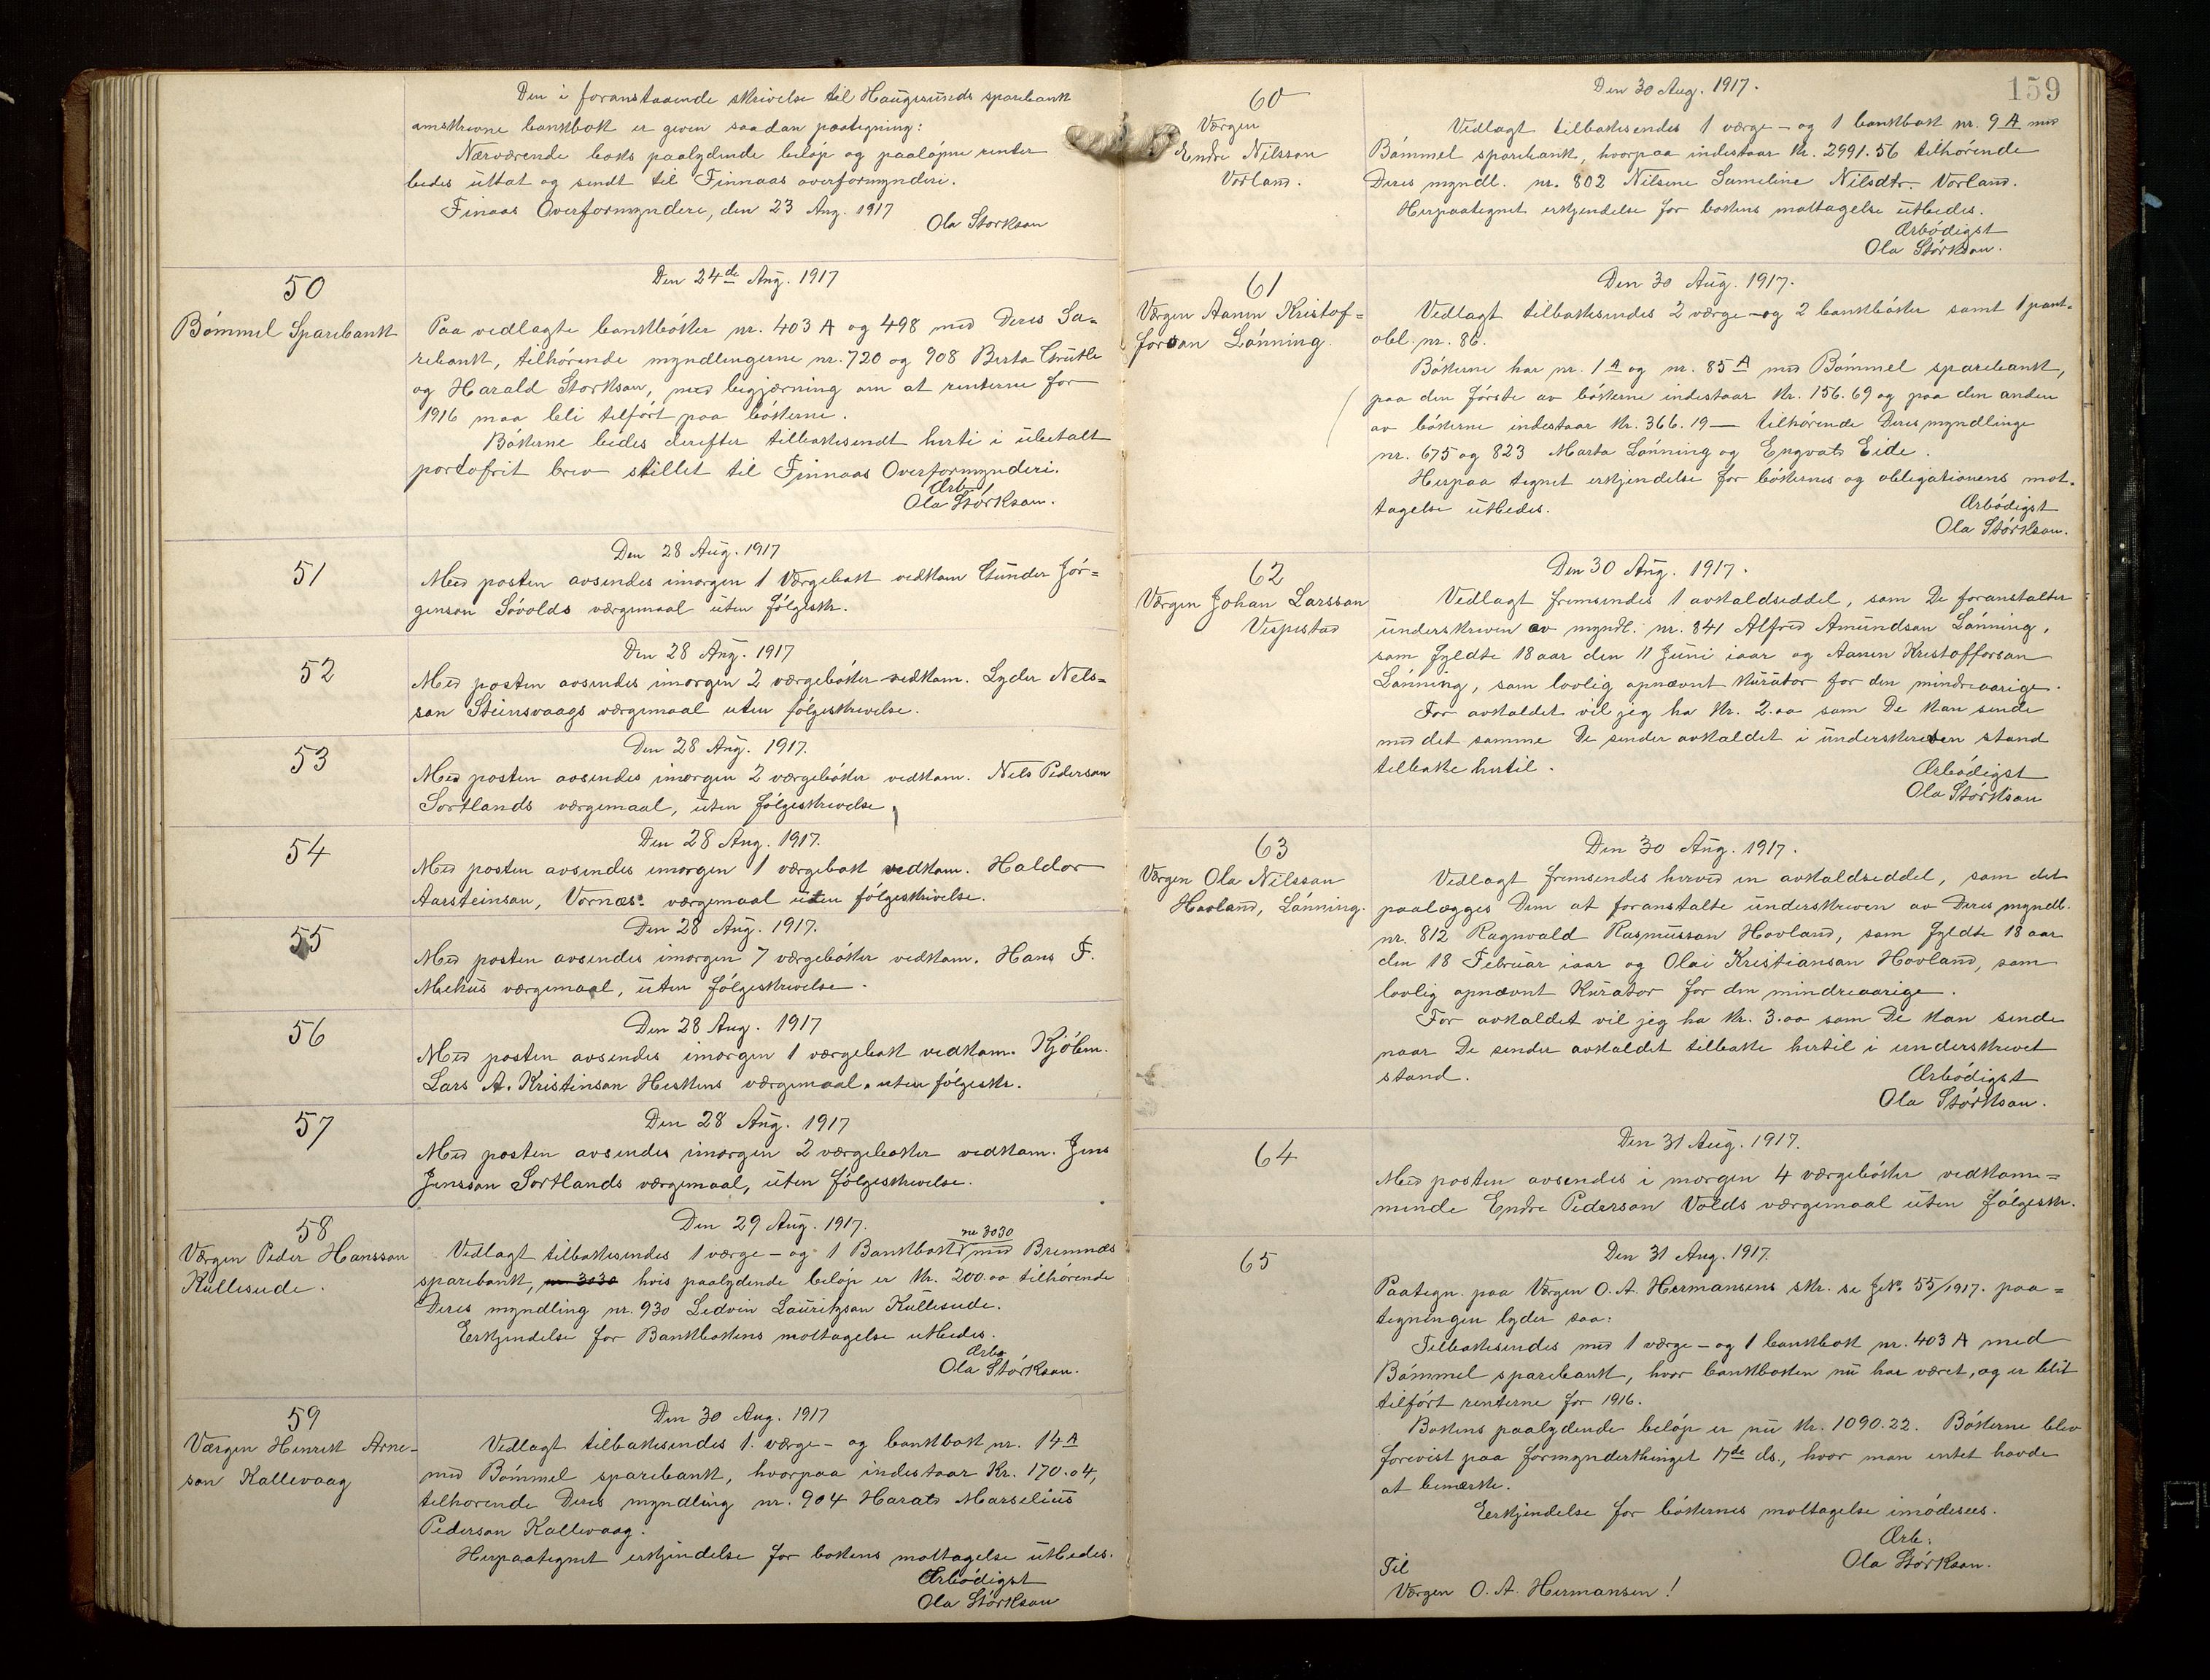 Den i foranstaaende skrivelse til Haugesunds sparebank
omskrevne bankbok er given saadan paategning:
Nærværende boks paalydende beløp og paaløpne renter
bedes uttat og sendt til Finnaas overformynderi.
Finaas Overformynderi, den 23 Aug. 1917
Ola Størkson
50
Den 24de Aug. 1917
Bømmel Sparebank
Paa vedlagte bankbøker nr. 403 A og 498 med Deres Spa=
rebank, tilhørende myndlingerne nr. 720 og 908 Berta
og Harald Storkson, med begjæring om at renterne for
1916 maa bli tilført paa bøkerne.
Bøkerne bedes derefter tilbakesendt hertil i ubetalt
portofrit brev stillet til Finnaas Overformynderi.
Ærb.
Ola Størkson.
51
Den 28 Aug. 1917
Med posten avsendes imorgen 1 Værgebok vedkom Gunder Jør=
genson Søvolds værgemaal uten følgeskr.
52
Den 28 Aug. 1917
Med posten avsendes imorgen 2 værgebøker vedkom. Lyder Nels=
son Steinsvaags værgemaal uten følgeskrivelse.
53
Den 28 Aug. 1917.
Med posten avsendes imorgen 2 værgebøker vedkom. Nels Pederson
Sortlands værgemaal, uten følgeskrivelse
54
Den 28 Aug. 1917.
Med posten avsendes imorgen 1 værgebok vedkom. Haldor
Aarsteinson, Vornæs: værgemaal uten følgeskrivelse.
55
Den 28 Aug. 1917.
Med posten avsendes imorgen 7 værgebøker vedkom. Hans F.
Mehus værgemaal, uten følgeskrivelse.
56
Den 28 Aug. 1917
Med posten avsendes imorgen 1 værgebok vedkom. Kjøbm.
Lars A. Kristinson Heskens værgemaal. uten følgeskr.
57
Den 28 Aug. 1917
Med posten avsendes imorgen 2 værgebøker vedkom. Jens
Jensson Sortlands værgemaal, uten følgeskrivelse.
58
Den 29 Aug. 1917.
Værgen Peder Hansson
Kulleseide.
nr 3030
Vedlagt tilbakesendes 1 værge- og 1 Bankbok med Bremnæs
sparebank, nr. 3030 hvis paalydende beløp er Kr. 200.00 tilhørende
Deres myndling nr. 930 Ledvin Lauritzson Kulleseide.
Erkjendelse for Bankbokens mottagelse utbedes.
Ærb
Ola Størkson.
59
Den 30 Aug. 1917
Værgen Henrik Arne-
son Kallevaag
Vedlagt tilbakesendes 1. værge- og bankbok nr. 14 A
med Bømmel sparebank, hvorpaa indestaar Kr. 170.04,
tilhørende Deres myndling nr. 904 Harald Marselius
Pederson Kallevaag.
Herpaategnet erkjendelse for bokens mottagelse utbedes.
Ærbødigst
Ola Størkson
159
60
Den 30 Aug. 1917.
Værgen
Endre Nilsson
Vorland.
Vedlagt tilbakesendes 1 værge- og 1 bankbok nr. 9 A med
Bømmel sparebank, hvorpaa indestaar Kr. 2991.56 tilhørende
Deres myndl. nr. 802 Nilsine Sameline Nilsdtr. Vorland.
Herpaategnet erkjendelse for bokens mottagelse utbedes.
Ærbødigst
Ola Størkson.
61
Den 30 Aug. 1917.
Værgen Aanen Kristof=
forson Lønning.
Vedlagt tilbakesendes 2 værge- og 2 bankbøker samt 1 pant-
obl. nr. 86.
Bøkerne har nr. 1 A og nr. 85 A med Bømmel sparebank,
paa den første av bøkerne indestaar Kr. 156.69 og paa den anden
av bøkerne indestaar Kr. 366.19 — tilhørende Deres myndlinge
nr. 675 og 823 Marta Lønning og Engvald Eide.
Herpaa tegnet erkjendelse for bøkernes og obligationens mot-
tagelse utbedes.
Ærbødigst
Ola Størkson.
62
Den 30 Aug. 1917.
Værgen Johan Larsson
Vespestad
Vedlagt fremsendes 1 avkaldseddel, som De foranstalter
underskreven av myndl. nr. 841 Alfred Amundson Lønning,
som fyldte 18 aar den 11 Juni iaar og Aanen Kristofferson
Lønning, som lovlig opnævnt Kurator for den mindreaarige.
For avkaldet vil jeg ha Kr. 2.00 som De kan sende
med det samme De sender avkaldet i underskreven stand
tilbake hertil.
Ærbødigst
Ola Størkson
63
Den 30 Aug. 1917.
Værgen Ola Nilsson
Hovland, Lønning.
Vedlagt fremsendes herved en avkaldseddel, som det
paalægges Dem at foranstalte underskreven av Deres myndl.
nr. 812 Ragnvald Rasmusson Hovland, som fyldte 18 aar
den 18 Februar iaar og Olai Kristianson Hovland, som
lovlig opnævnt Kurator for den mindreaarige.
For avkaldet vil jeg ha Kr. 3.00 som De kan sende
naar De sender avkaldet tilbake hertil i underskrevet
stand.
Ærbødigst
Ola Størkson.
64
Den 31 Aug. 1917.
Med posten avsendes i morgen 4 værgebøker vedkom=
mende Endre Pederson Volds værgemaal uten følgeskr.
65
Den 31 Aug. 1917.
Paategn. paa Værgen O. A. Hermansens skr. se J.No. 55/1917. paa=
tegningen lyder saa:
Tilbakesendes med 1 værge- og 1 bankbok nr. 403 A med
Bømmel sparebank, hvor bankboken nu har været, og er blit
tilført renterne for 1916.
Bokens paalydende beløp er nu Kr. 1090.22. Bøkerne blev
forevist paa formynderthinget 17de ds., hvor man intet havde
at bemerke.
Erkjendelse for bøkernes mottagelse imødesees.
Ærb.
Ola Størkson.
Til
Værgen O. A. Hermansen!